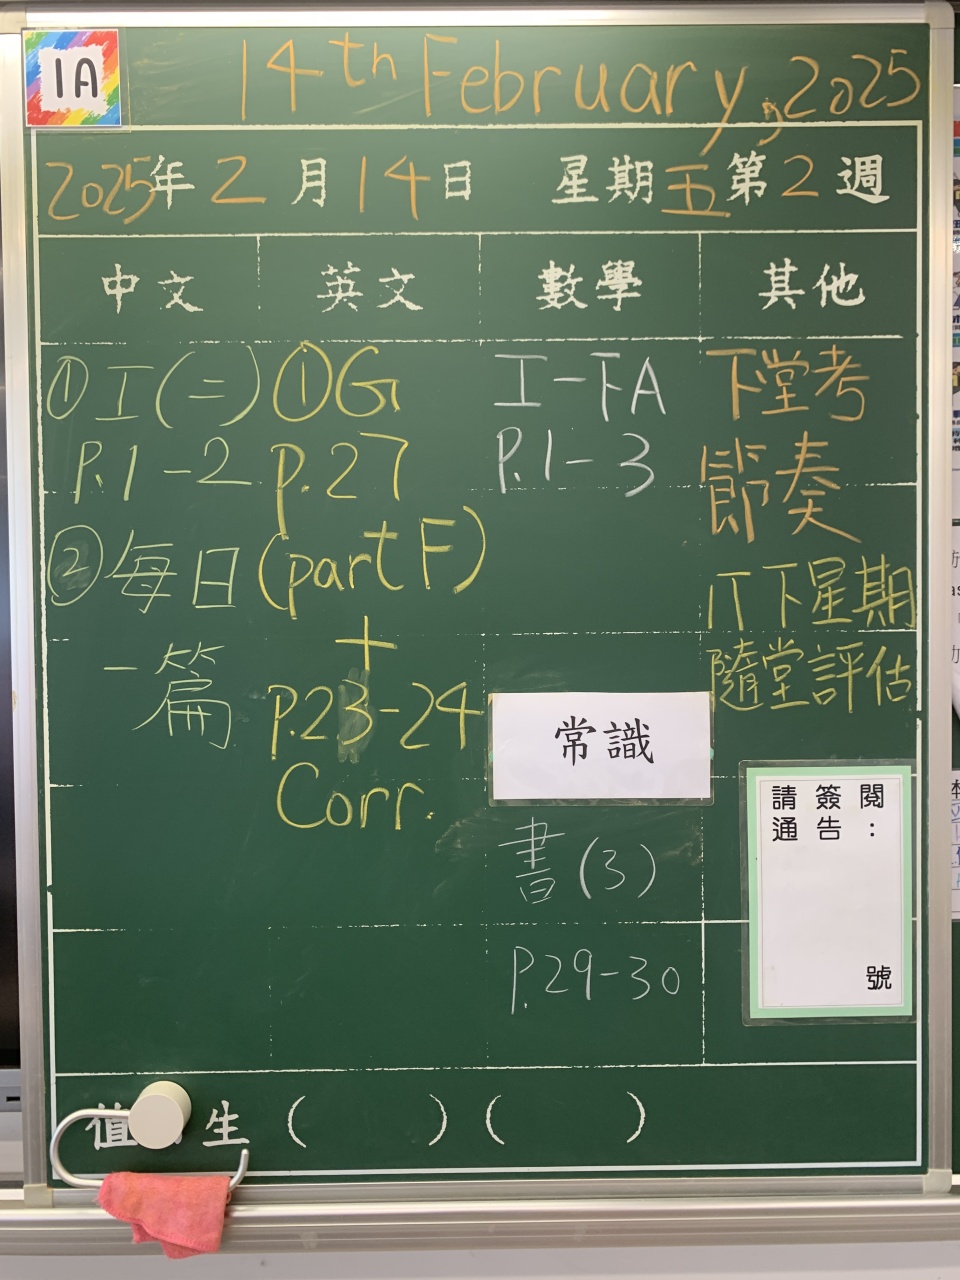 1A
14th February, 2025
2025年2月14日 星期五 第2週
中文 英文 數學 其他
①工(二)
P.1-2
②每日
一篇
①G
P.27
(part F)
+
P.23-24
Corr.
工一下A
P.1-3
常識
書(3)
P.29-30
下堂考
節奏
IT下星期
隨堂評估
請簽閱
通告：
號
值 生 ( ) ( )